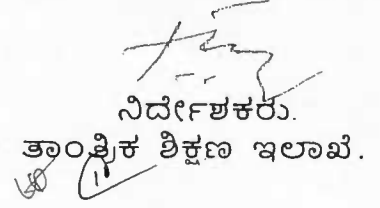 ನಿರ್ದೇಶಕರು.
ತಾಂತ್ರಿಕ ಶಿಕ್ಷಣ ಇಲಾಖೆ.